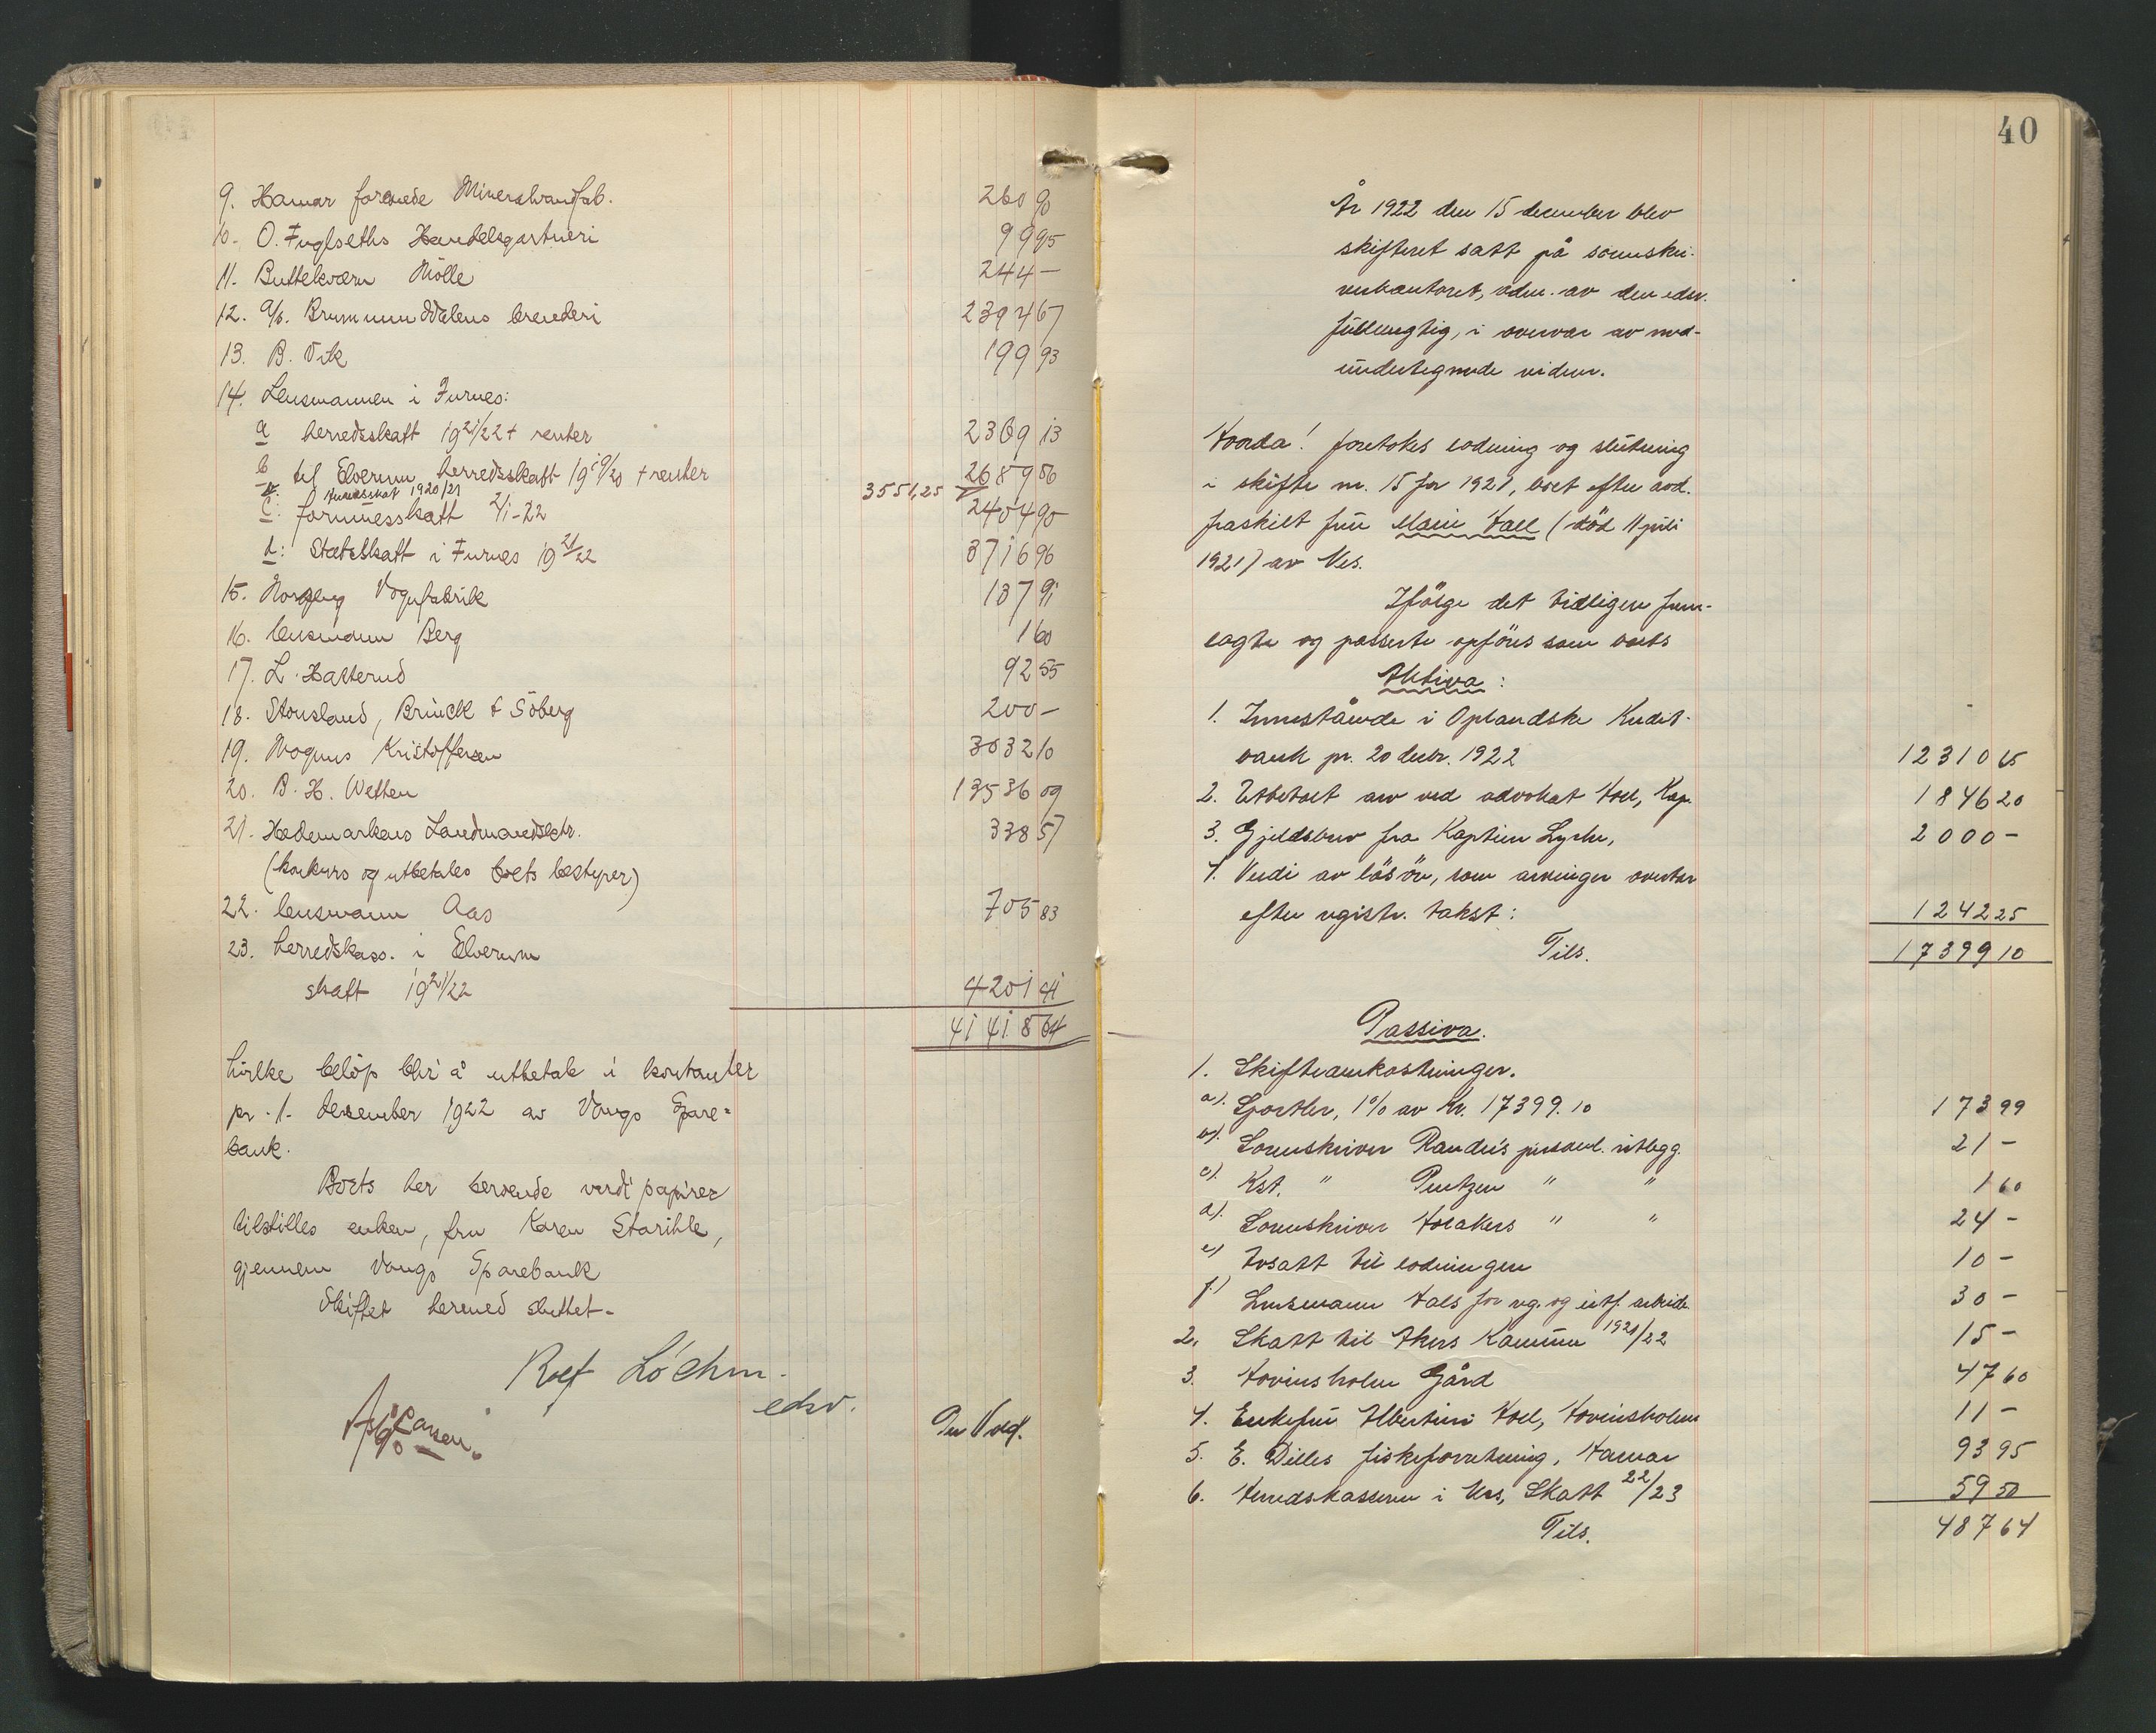 9. Hamar forenede Mineralvandfab. 260 90
10. O. Fuglseths Handelsgartneri 99 95
11. Buttekværn Mölle 244 —
12. A/S. Brummunddalens brenderi 2394 67
13. B. Vik 199 93
14. Lensmannen i Furnes:
a herredsskatt 1921/22 + renter 2369 13
b til Elverum herredsskatt 1919/20 + renter 2689 56
1920/21 3551,25
c. formuesskatt 2/1-22 2404 90
d: Statsskatt i Furnes 1921/22 3716 96
15. Vognfabrik 137 91
16. lensmann Berg 1 60
17. L. Halterud 92 55
18. Storsland, Brinck & Söberg 200 —
19. Magnus Kristoffersen 3032 10
20. B. H. Wetten 13536 09
21. Hedemarkens Landmandsctr. 338 57
(konkurs og utbetales boets bestyrer)
22. lensmann Aas 705 83
23. herredskass. i Elverum
skatt 1921/22 4201 41
41418 64
hvilke belöp blir å utbetale i kontanter
pr. 1. desember 1922 av Vangs Spare=
bank.
Boets her beroende verdipapirer
tilstilles enken, fru Karen Starihle,
gjennem Vangs Sparebank
Skiftet hermed sluttet.
Rolf Löchen.
edsv.
Per Vold.
40
År 1922 den 15 december blev
skifteret satt på sorenskri-
verkontoret, adm. av den edsv.
fullmegtig, i overvær av med-
undertegnede vidner.
Hvorda! foretokes lodning og slutning
i skifte nr. 15 for 1921, boet efter avd.
fraskilt fru Marie Hall (död 11 juli
1921) av Nes.
Ifölge det tidligere frem-
lagte og passerte opföres som boets
Aktiva:
1. Innestående i Oplandske Kredit-
bank pr. 20 decbr. 1922 12310 65
2. Utbetalt arv ved advokat Hoel, Kap. 1846 20
3. Gjeldsbrev fra Kaptein Lyche, 2000 —
4. Verdi av lösöre, som arvinger overtar
efter registr. takst: 1242 25
Tils. 17399 10
Passiva.
1. Skifteomkostninger.
a). Sportler, 1% av kr. 17399.10 173 99
b). Sorenskriver Randers personl. utlegg. 21 —
c). Kst. " Pentzen " " 1 60
d). Sorenskriver Hvalers " " 24 —
e) Avsatt til lodningen 10 —
f.) Lensmann Hals for reg. og utf. arbeide 30 —
2. Skatt til Akers Kommune 1921/22 15 —
3. Hovinsholm Gård 47 60
4. Enkefru Albertine Hoel, Hovinsholm 11 —
5. E. Dilles fiskeforretning, Hamar 93 95
6. Herredskasseren i Nes, Skatt 22/23 59 50
Tils. 487 64